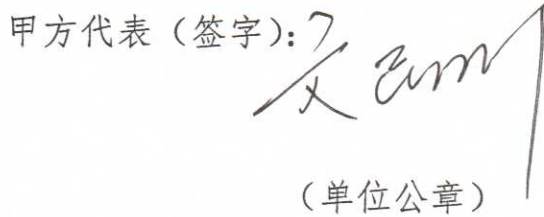 甲方代表（签字）：
（单位公章）